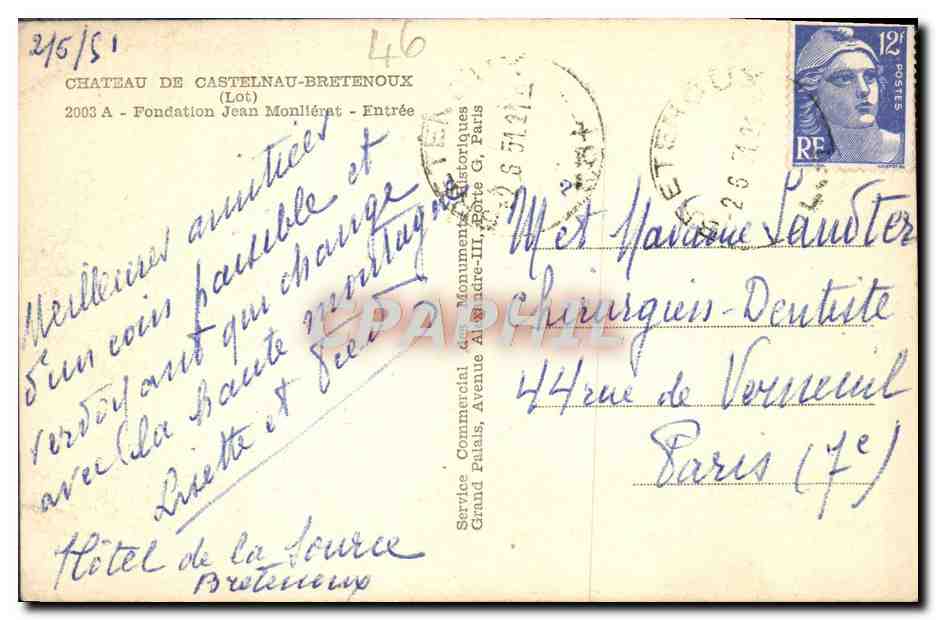 2/6/51
46
CHATEAU DE CASTELNAU-BRETENOUX
(Lot)
2003 A - Fondation Jean Monliérat - Entrée
Meilleures amitiées
d'un coin paisible et
verdoyant qui change
avec la haute montagne
Lisette et
Hôtel de la Source
Bretenoux
Service Commercial des Monuments Historiques
Grand Palais, Avenue Alexandre-III, Porte G, Paris
BRETENOUX
2-6 51
LOT
BRETENOUX
2-6 51
12F
POSTES
RF
M et Madame
Chirurgien-Dentiste
44 rue de Verneuil
Paris (7e)
CPAPHIL